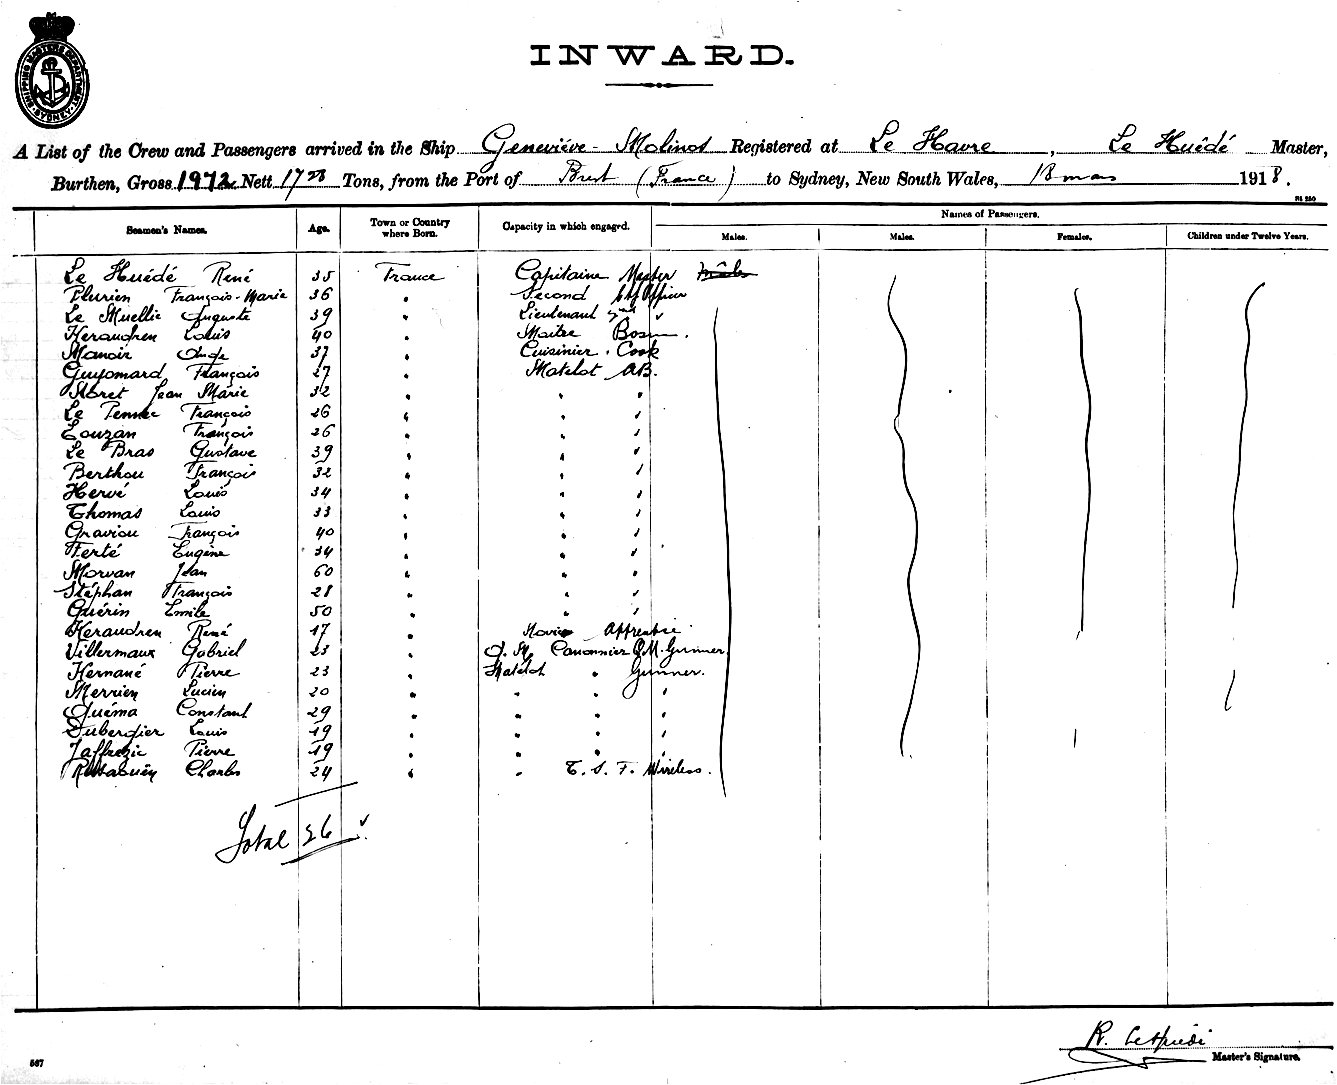 SHIPPING MASTER'S DEPARTMENT SYDNEY
INWARD.
A List of the Crew and Passengers arrived in the Ship Geneviève - Molinos Registered at Le Havre, Le Huédé Master,
Burthen, Gross 1972 Nett 1728 Tons, from the Port of Brest (France) to Sydney, New South Wales, 18 mars 1918.
Seamen's Names. Age. Town or Country where Born. Capacity in which engaged. Names of Passengers.
Males. Males. Females. Children under Twelve Years.
Le Huédé René 35 France Capitaine Master
Plurien François-Marie 36 " Second Off Officer
Le Muellic Auguste 39 " Lieutenant 2nd "
Keraudren Louis 40 " Maitre Bosun.
Manoir Ange 37 " Cuisinier. Cook
Guyomard François 27 " Matelot AB.
Noret Jean Marie 32 " " "
Le Pennec François 26 " " "
Louzan François 26 " " "
Le Bras Gustave 39 " " "
Berthou François 32 " " "
Hervé Louis 34 " " "
Thomas Louis 33 " " "
Graviou François 40 " " "
Ferté Eugène 34 " " "
Morvan Jean 60 " " "
Stéphan François 28 " " "
Guérin Emile 50 " " "
Keraudren René 17 " Novice Apprentice
Villermaux Gabriel 23 " Q. M. Canonnier Q.M. Gunner
Kernané Pierre 23 " Matelot " Gunner.
Merrien Lucien 20 " " " "
Quéma Constant 29 " " " "
Dubergier Louis 19 " " " "
Jaffrezic Pierre 19 " " " "
Charles 24 " " T. S. F. Wireless.
Total 26
R. Le Huédé
Master's Signature.
567